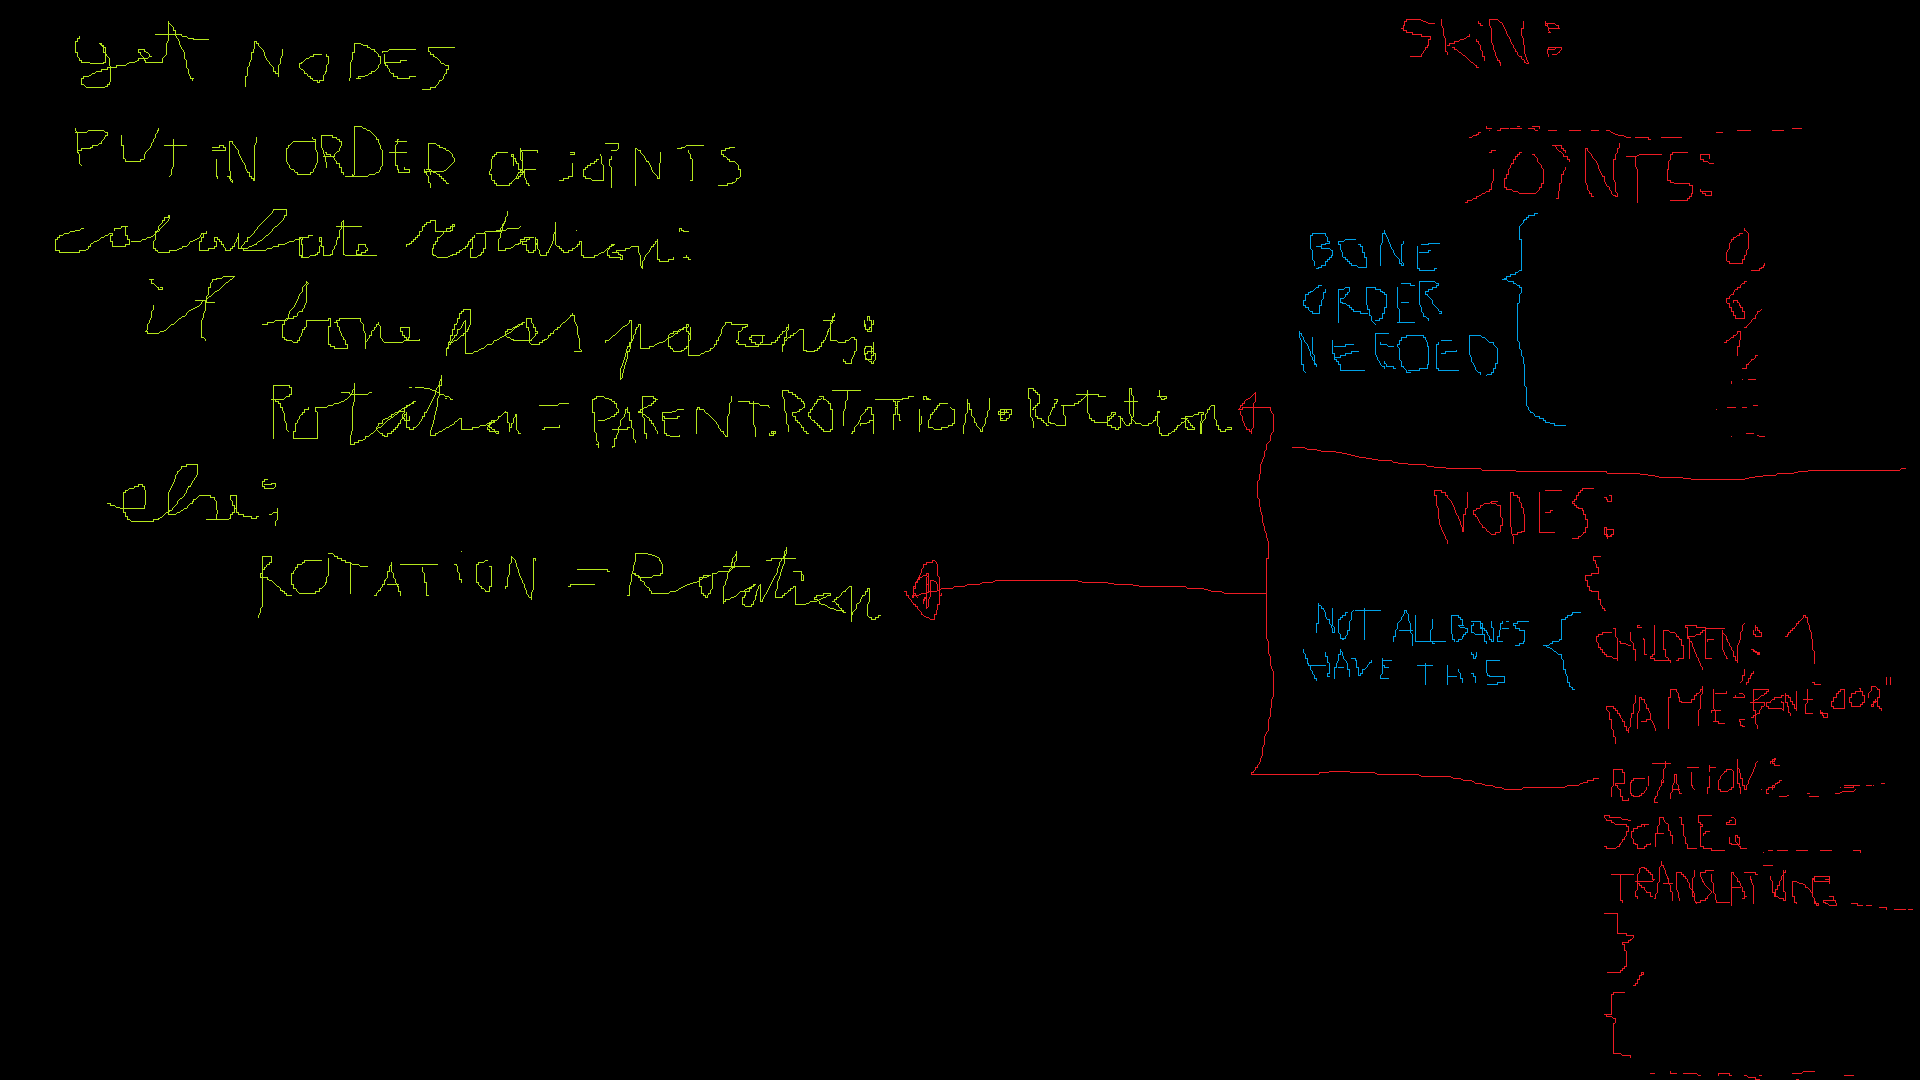 get NODES
PUT IN ORDER OF JOINTS
calculate rotation:
if bone has parents:
Rotation = PARENT.ROTATION • Rotation
else:
ROTATION = Rotation
SKIN:
JOINTS:
BONE
ORDER
NEEDED
0,
6,
1,
NODES:
{
NOT ALL BONES
HAVE THIS
CHILDREN: 1
NAME: "BONE.002"
ROTATION:
SCALE:
TRANSLATION:
},
{